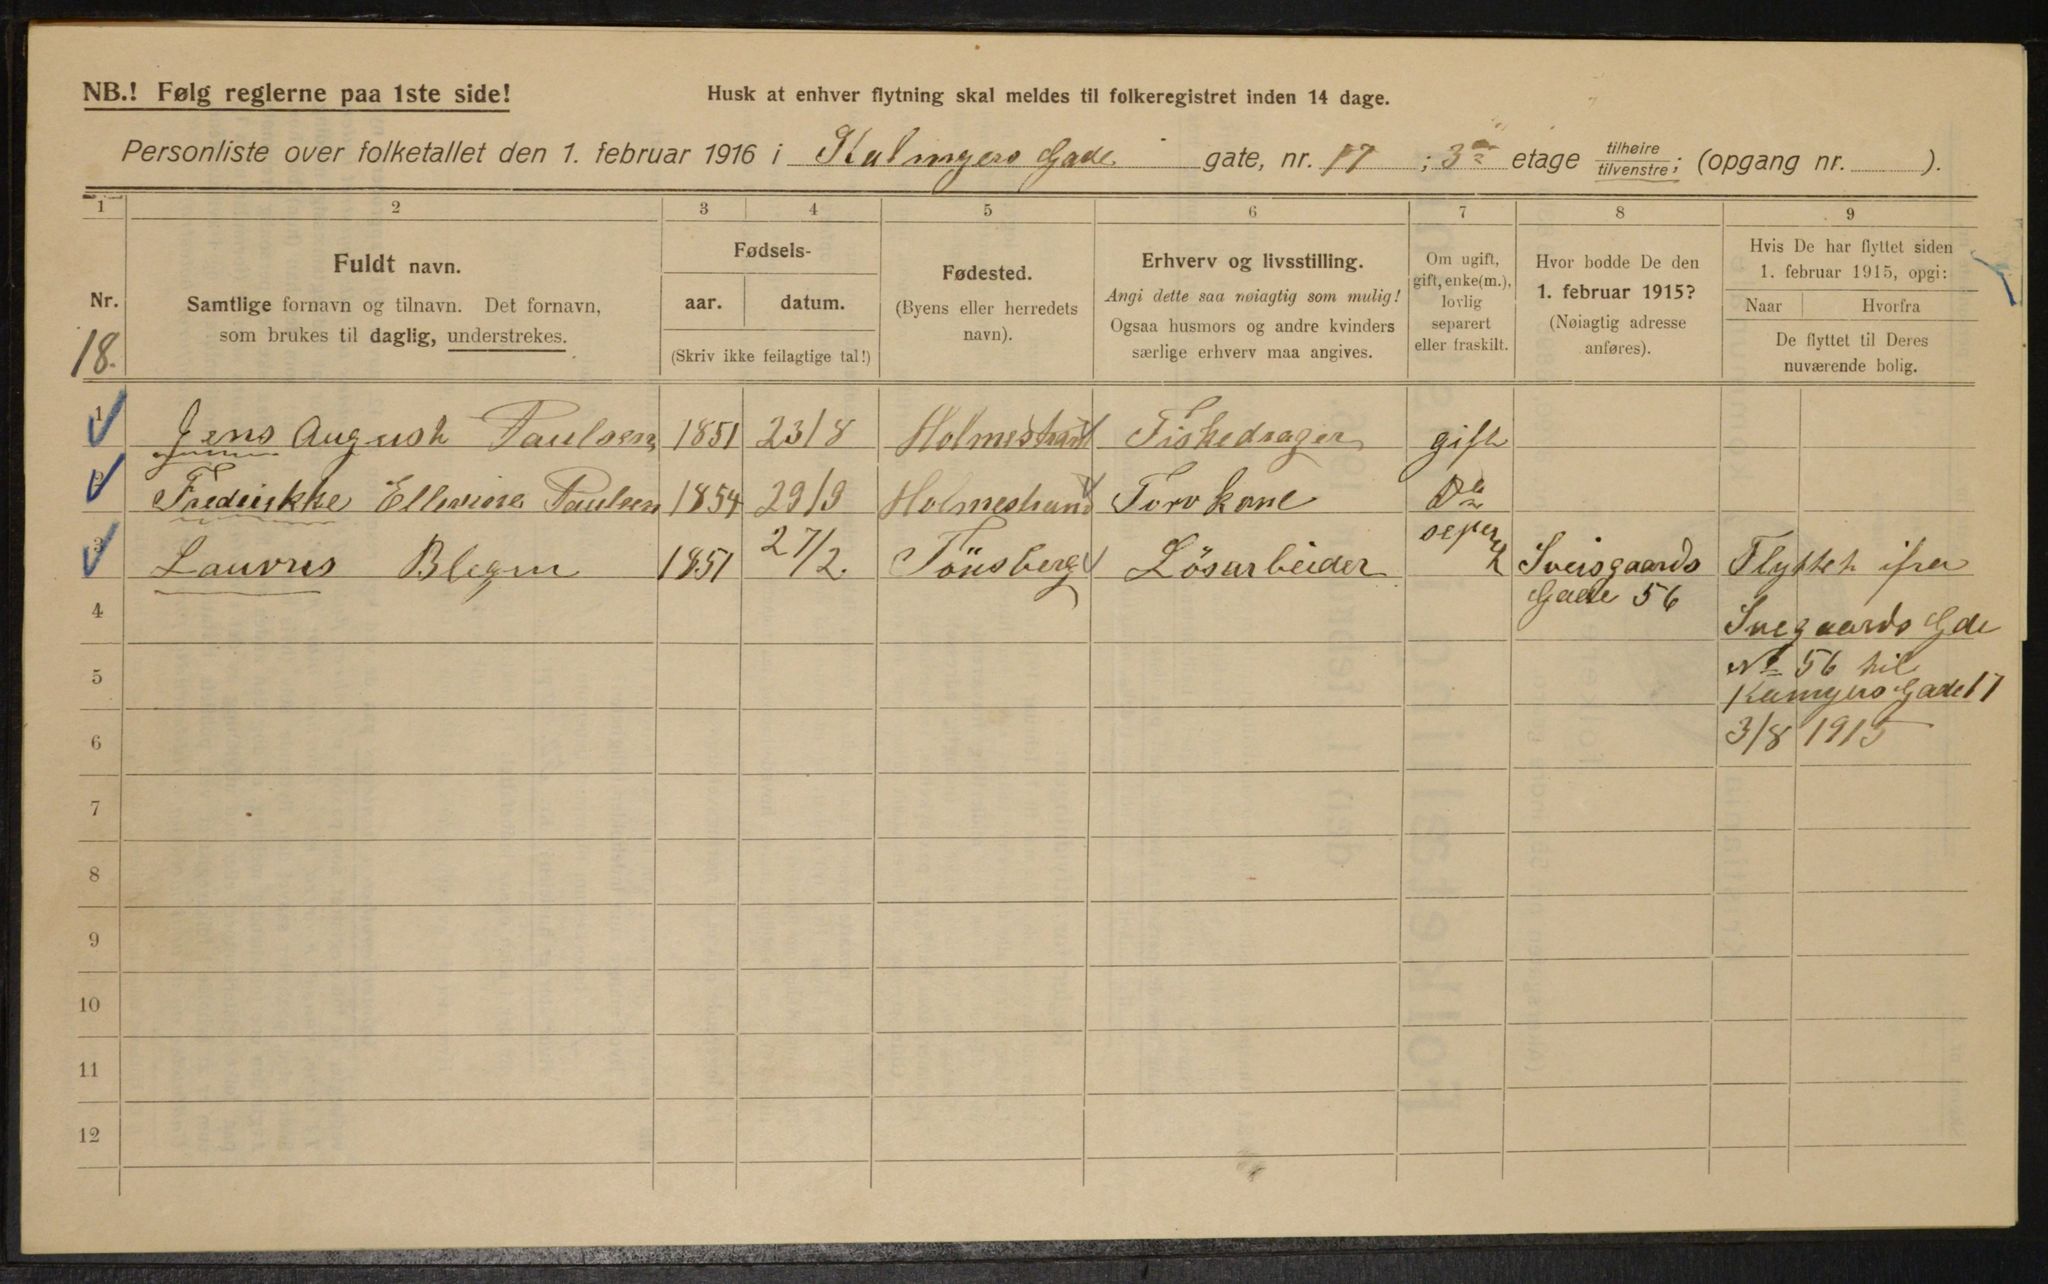 NB.! Følg reglerne paa 1ste side!
Husk at enhver flytning skal meldes til folkeregistret inden 14 dage.
Personliste over folketallet den 1. februar 1916 i Kalmyers Gade gate, nr. 17 ; 3die etage tilhøire tilvenstre; (opgang nr. ).
1 2 3 4 5 6 7 8 9
Nr.
18.
Fuldt navn.
Samtlige fornavn og tilnavn. Det fornavn,
som brukes til daglig, understrekes.
Fødsels-
aar. datum.
(Skriv ikke feilagtige tal!)
Fødested.
(Byens eller herredets
navn).
Erhverv og livsstilling.
Angi dette saa nøiagtig som mulig!
Ogsaa husmors og andre kvinders
særlige erhverv maa angives.
Om ugift,
gift, enke(m.),
lovlig
separert
eller fraskilt.
Hvor bodde De den
1. februar 1915?
(Nøiagtig adresse
anføres).
Hvis De har flyttet siden
1. februar 1915, opgi:
Naar Hvorfra
De flyttet til Deres
nuværende bolig.
1 Jens August Paulsen 1851 23/8 Holmestrand Fiskedrager gift
2 Fredrikke Ellevine Paulsen 1854 29/9 Holmestrand Torvkone Do
3 Lauvris Blegen 1851 27/2. Tönsberg Lösarbeider seper Sveisgaards Flyttet ifra
Gade 56
4 Svegaards Gde
5 No 56 til
Kamyers Gade 17
6 3/8 1915
7
8
9
10
11
12